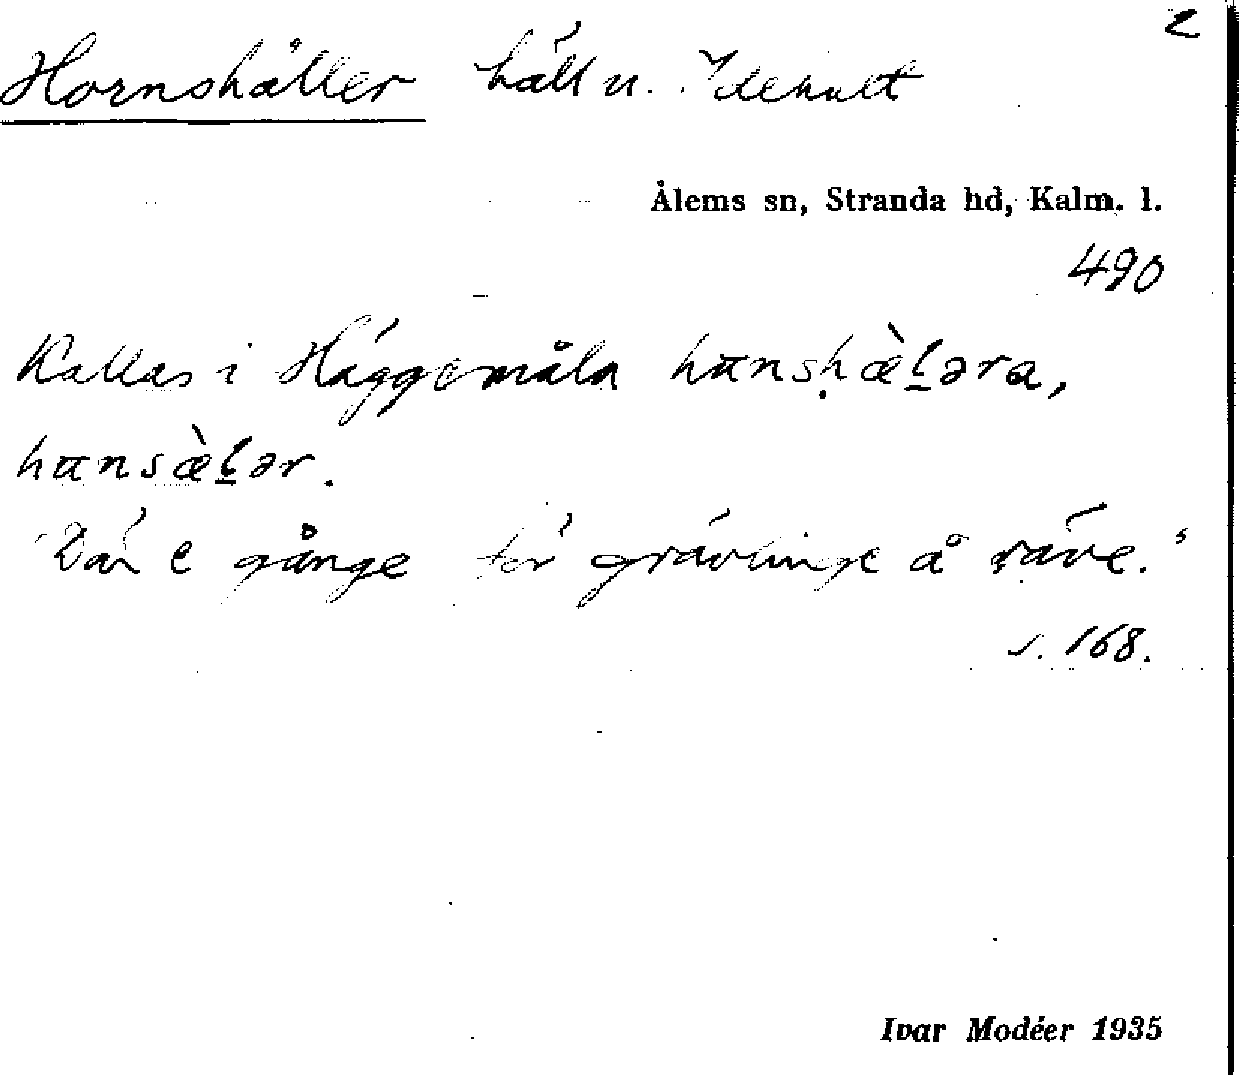 2
Hornshäller häll u. Idehult
Ålems sn, Stranda hd, Kalm. l.
490
Kallas i Häggemåla hɷnshæ̀lləra,
hɷnsæ̀llər.
"Där e gånge för grävlinge å räve."
s. 168.
Ivar Modéer 1935